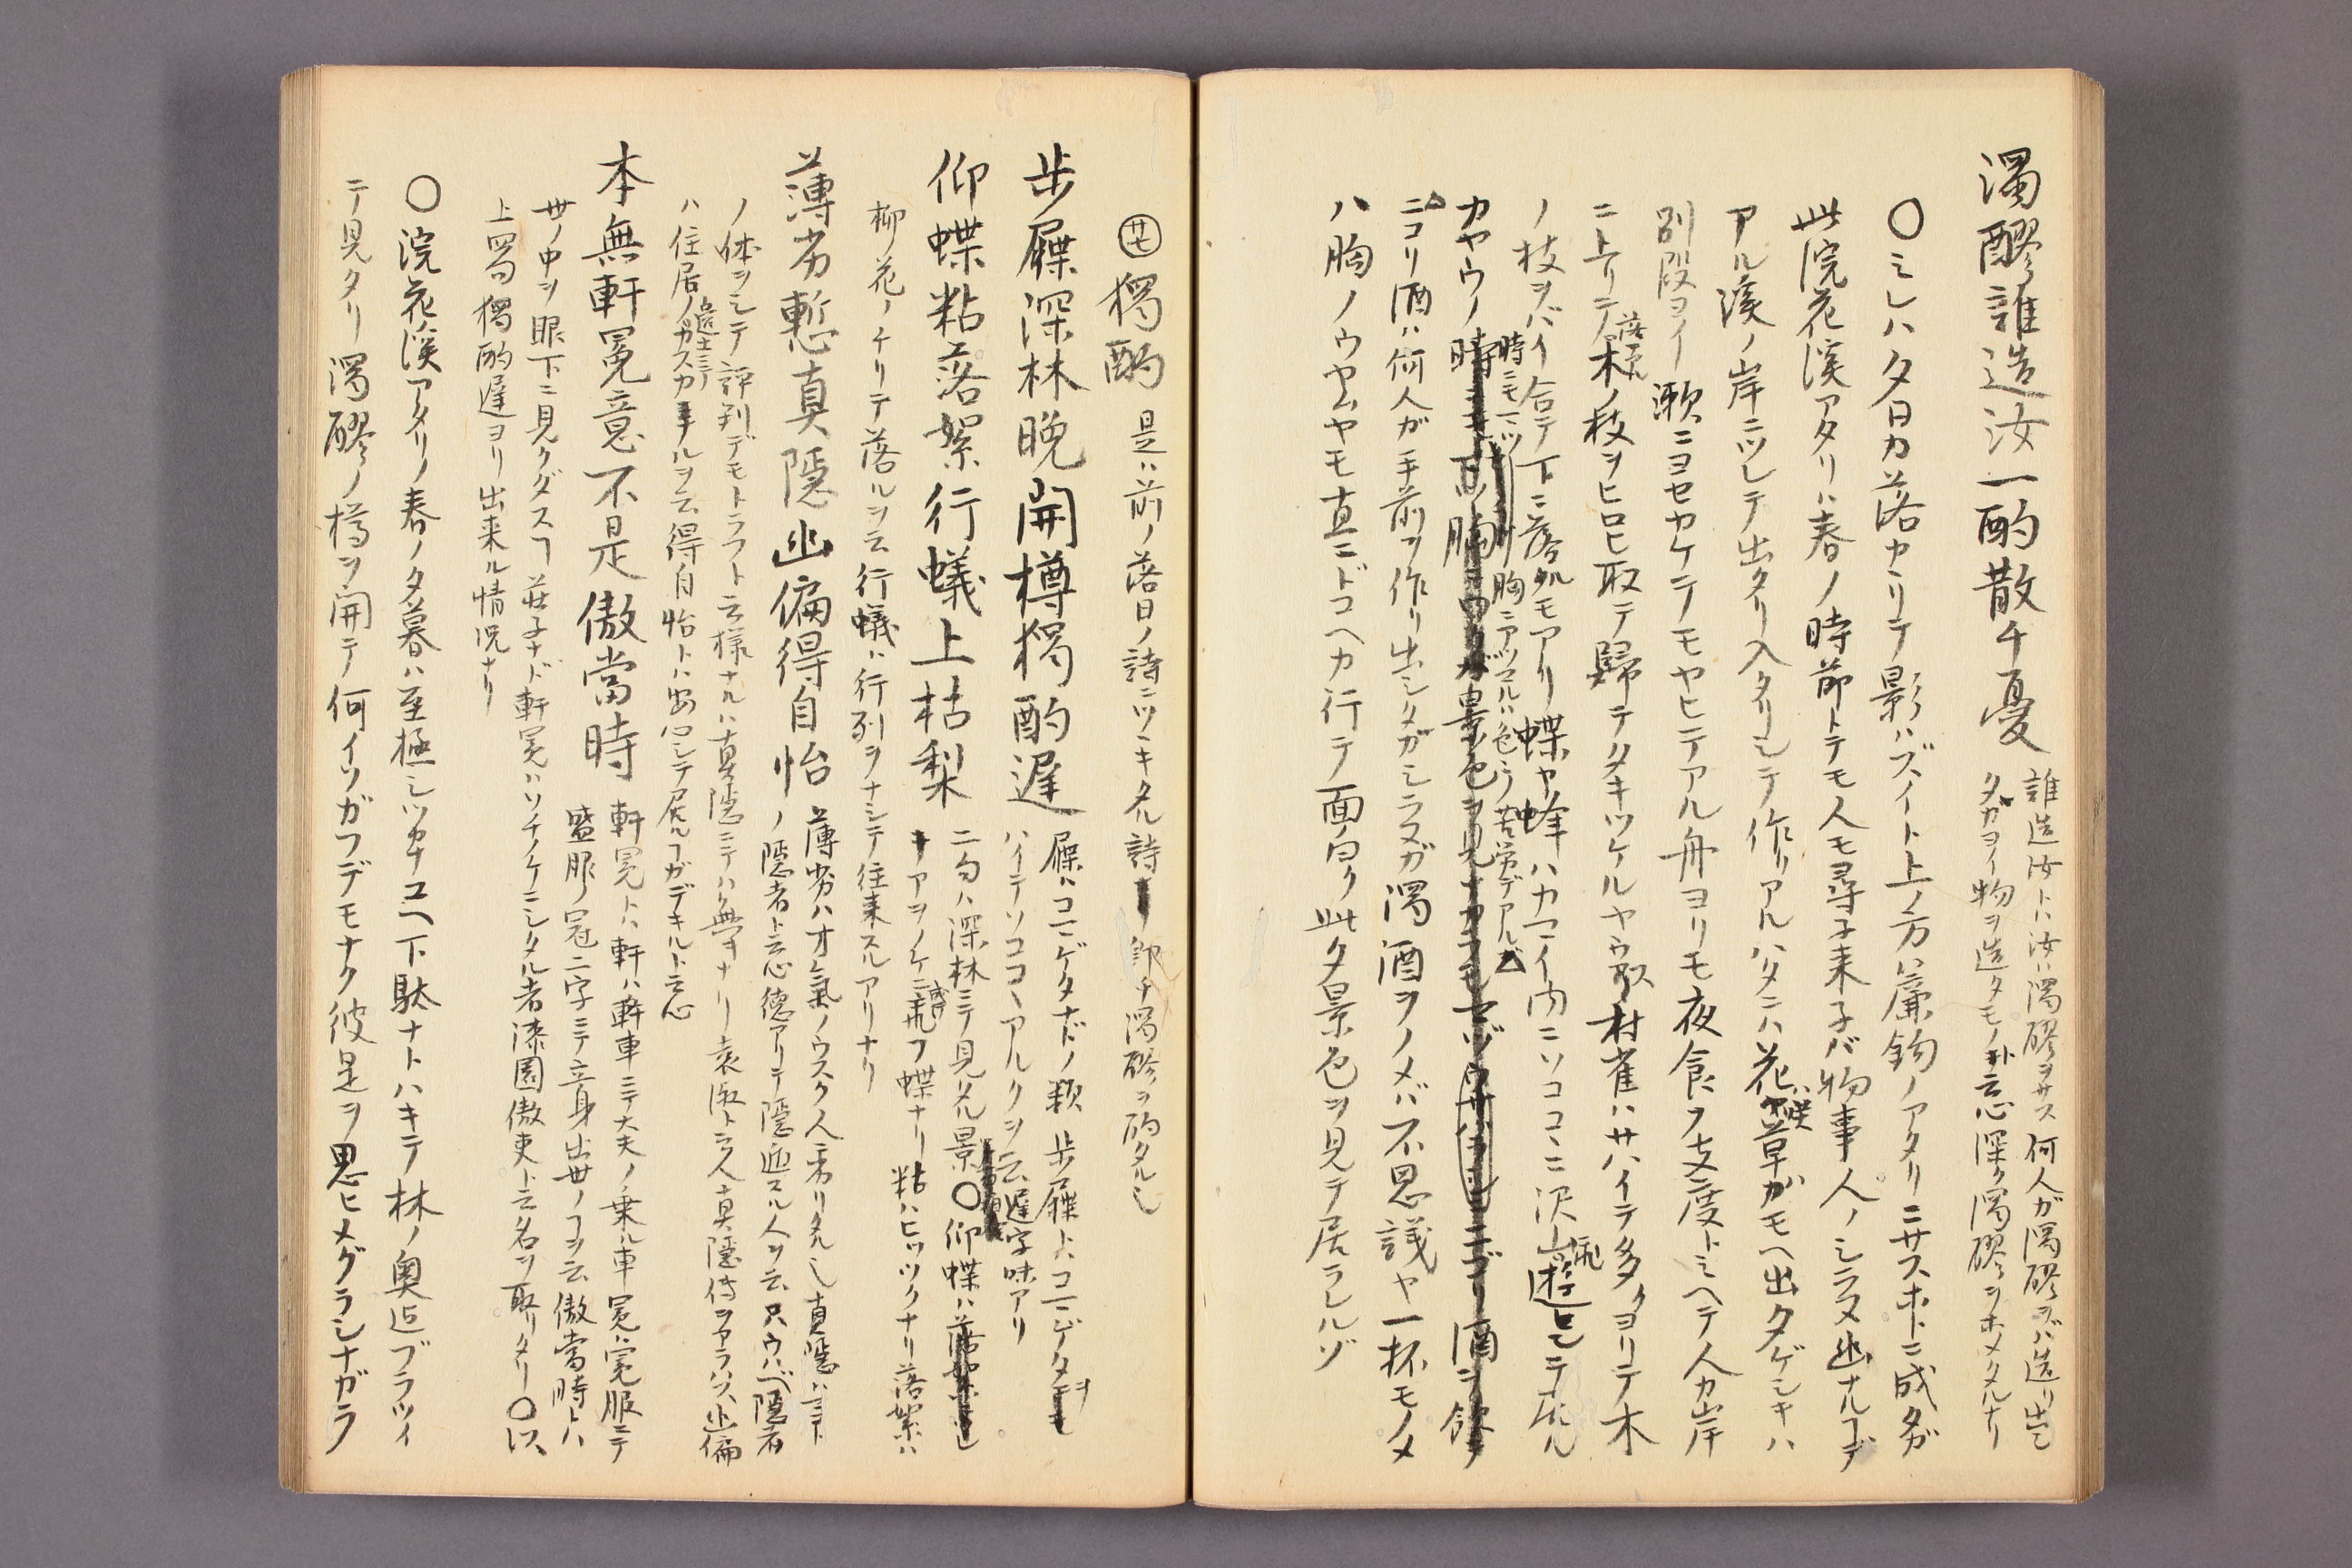 濁醪誰造汝一酌散千憂
誰造汝トハ汝ハ濁醪ヲサス 何人が濁醪ヲバ造リ出シ
タガヨイ物ヲ造タモノ ト云心 深ク濁醪ヲホメタルナリ
〇ミレハ夕日カ落カヽリテ影ハズイト上ノ方ハ簾鉤ノアタリニサスホトニ成タガ
此浣花溪アタリハ春ノ時節トテモ人モ尋子来子バ物事人ノシラヌ幽ナルヿデ
アル溪ノ岸ニツレテ出タリ入タリシテ作リアルハタニハ花ハ咲草ガモヘ出タゲシキハ
別段ヨイ 瀬ニヨセカケテモヤヒテアル舟ヨリモ夜食ノ支度トミヘテ人カ岸
ニ上リテ落テ木ノ枝ヲヒロヒ取テ歸テタキツケルヤウ 村雀ハサハイテ多クヨリテ木
ノ枝ヲバイ合テ下ニ落ルモアリ蝶ヤ蜂ハカマイ内ニソココヽニ沢山飛遊ヒテ居ル
カヤウノ時 酒ヲ飲テ
時ニモ一ツ 胸ニアツマルハ色々ノ苦労デアルガ△
△ニコリ酒ハ何人が手前ヲ作リ出シタガシラヌガ濁酒ヲノメバ不思議ヤ一杯モノメ
ハ胸ノウヤムヤモ直ニドコヘカ行テ面白ク此夕景色ヲ見テ居ラルルゾ
㊆獨酌 是ハ前ノ落日ノ詩ニツヽキタル詩 即チ濁醪ヲ酌タルヿ
步屧深林晩開樽獨酌遲
屧ハコマゲタナドノ類 步屧トハコマゲタヲ
ハイテソココヽアルクヲ云 遲字味アリ
仰蝶粘落絮行蟻上枯梨
二句ハ深林ニテ見タル景〇仰蝶ハ
アヲノケニ飛フ蝶ナリ 粘ハヒツツクナリ 落絮ハ
柳花ノチリテ落ルヲ云 行蟻ハ行列ヲナシテ往来スルアリナリ
薄劣慙真隱幽偏得自怡
薄劣ハ才氣ノウスク人ニ劣リタル也 真隱ハマコト
ノ隱者ト云心 徳アリテ隱遁スル人ヲ云 只ウハベ隱者
ノ体ヲシテ評判デモトラフト云様ナルハ真隱ニテハ無キナリ 袁淑ト云人真隱傳ヲアラハス 幽偏
ハ住居ノ邊土ニテカスカナルヲ云 得自怡トハ安心シテ居ルヿガデキルト云心
本無軒冕意不是傲當時
軒冕トハ軒ハ軒車ニテ大夫ノ乗ル車 冕ハ冕服ニテ
盛服ノ冠 二字ニテ立身出世ノヿヲ云 傲當時トハ
世ノ中ヲ眼下ニ見クダスヿ 莊子ナド軒冕ハソチノケニシタル者漆園傲吏ト云名ヲ取リタリ〇以
上四句 獨酌遲ヨリ出来ル情況ナリ
〇浣花溪アタリノ春ノ夕暮ハ至極シツカナユヘ下駄ナトハキテ林ノ奥迄ブラツイ
テ見タリ濁醪ノ樽ヲ開テ何イソガフデモナク彼是ヲ思ヒメグラシナガラ